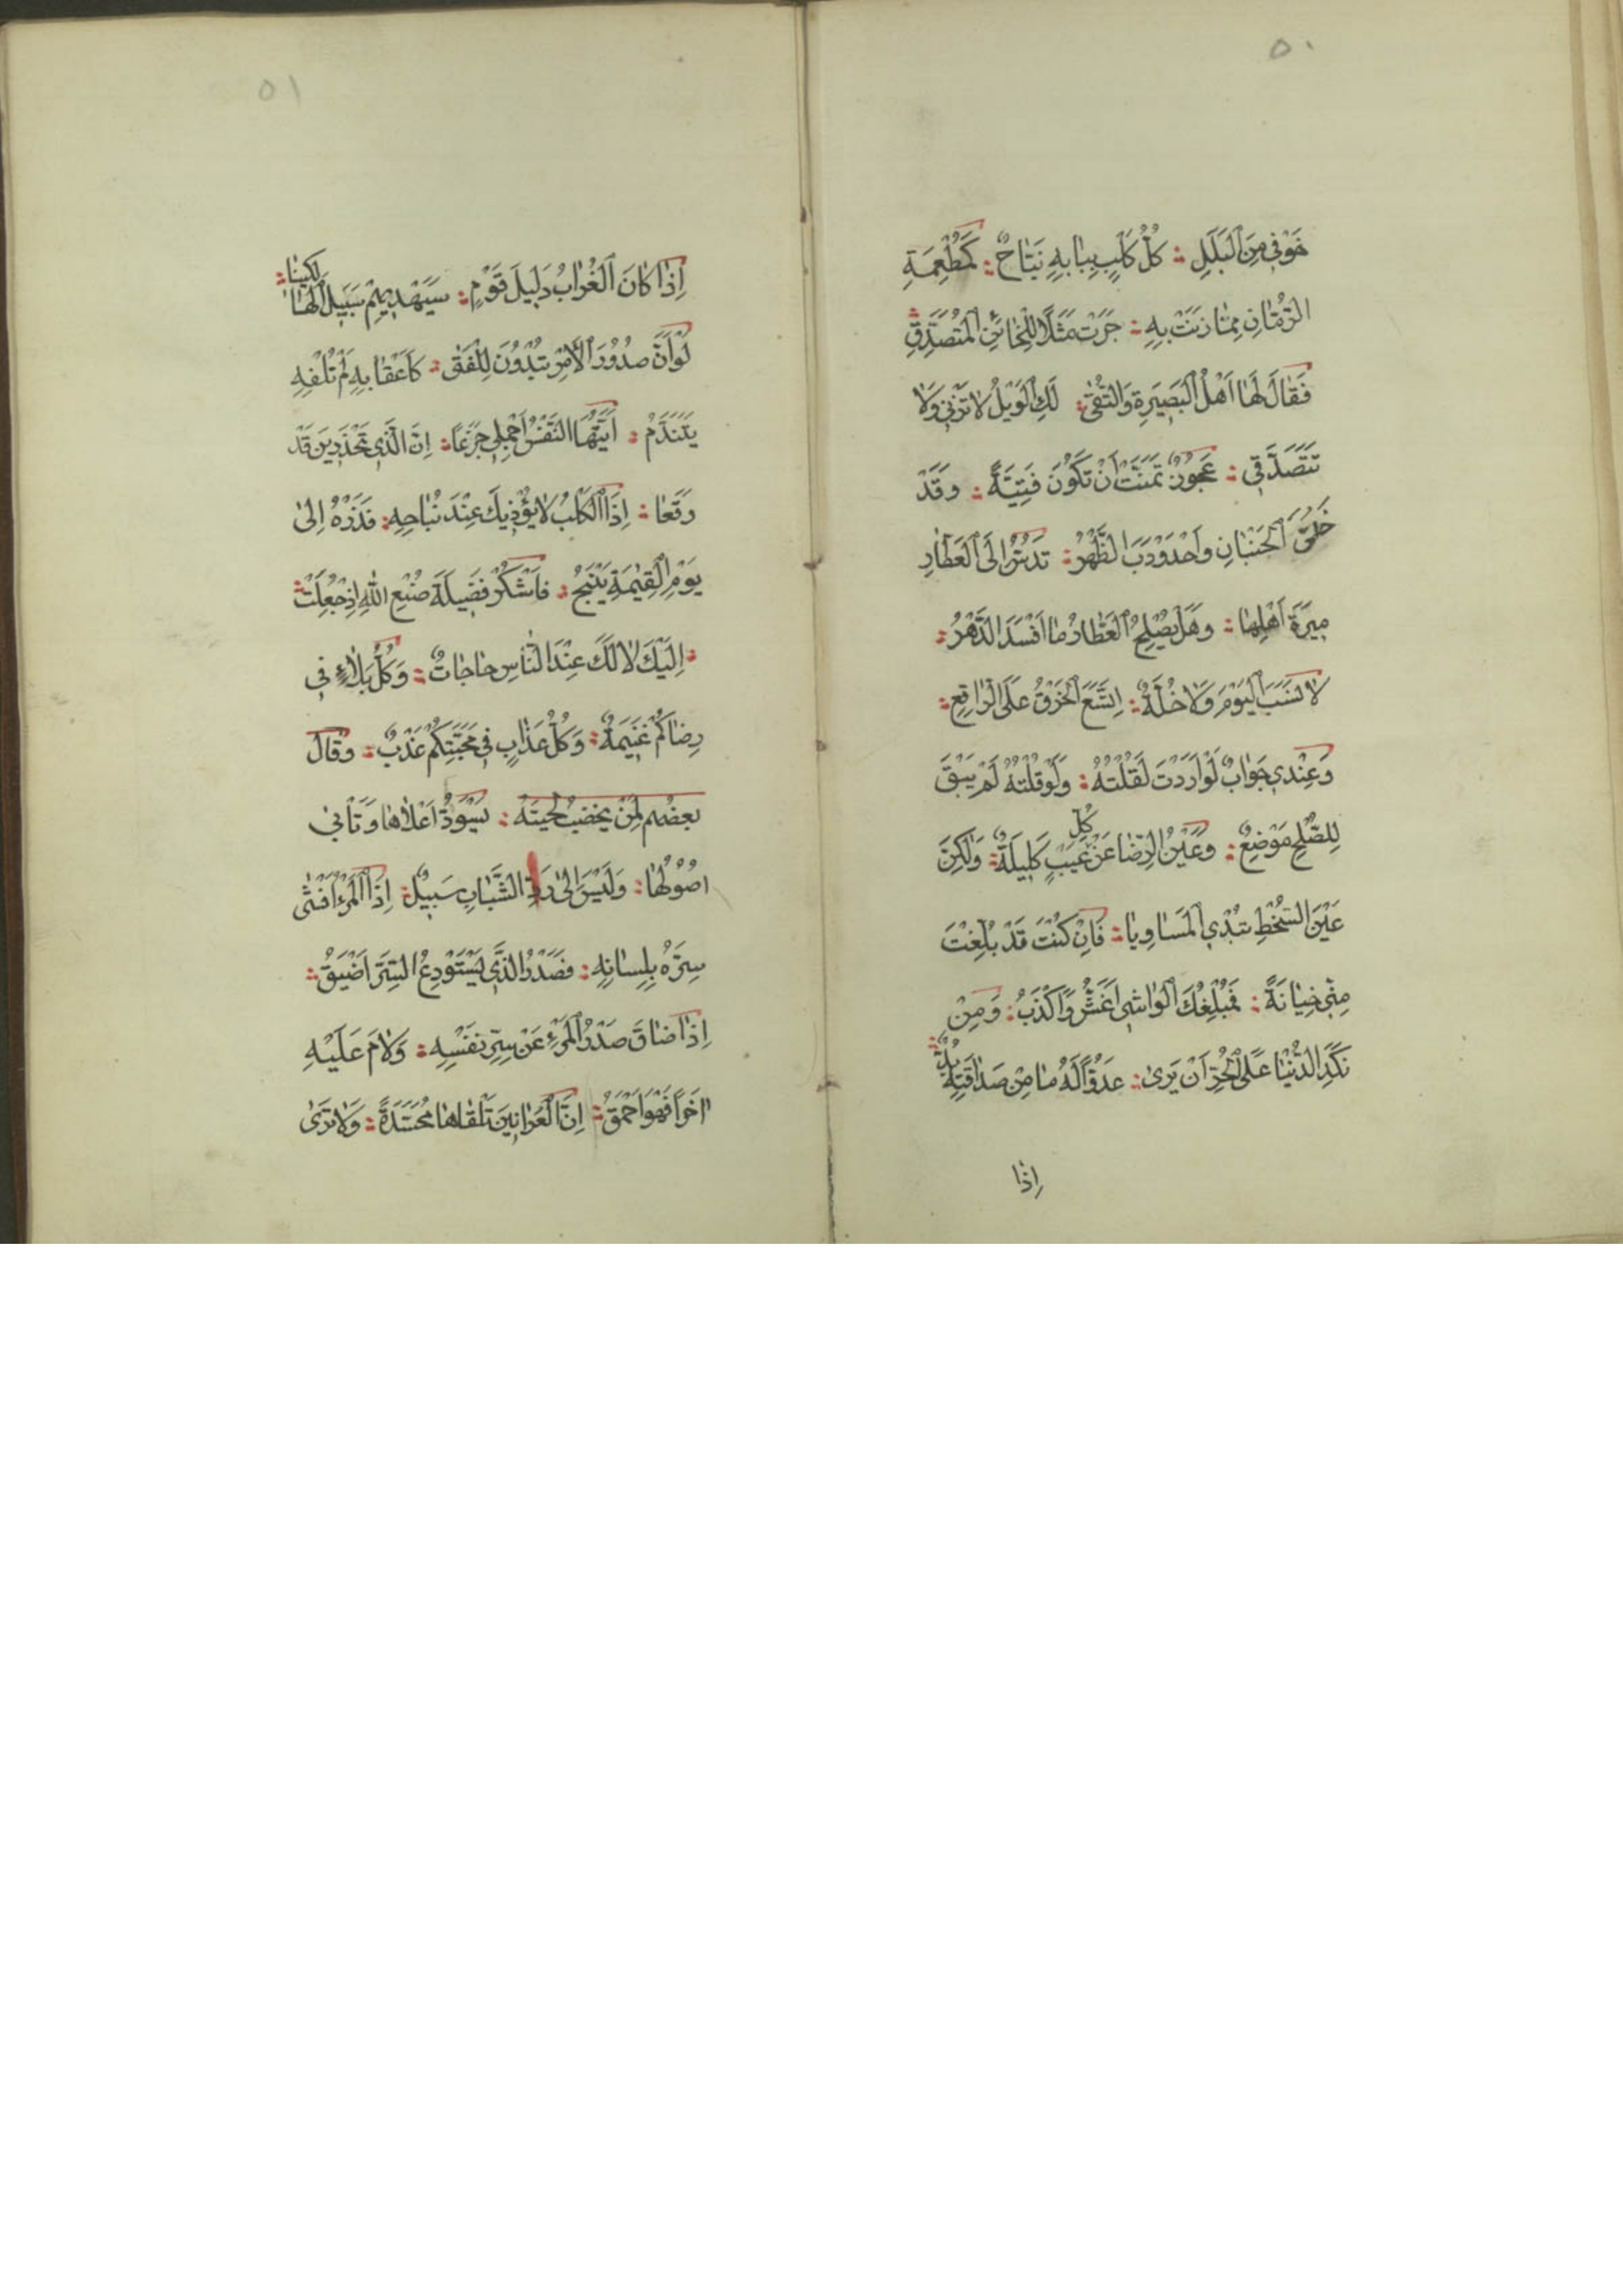 ٥٠
خَوْفِي مِنَ الْبَلَلِ ؞ كُلُّ كَلْبٍ بِبَابِهِ نَبَّاحٌ ؞ كَمُطْعِمَةِ
الرُّمَّانِ مِمَّا زَنَتْ بِهِ ؞ جَرَتْ مَثَلًا لِلْخَائِنِ الْمُتَصَدِّقِ ؞
فَقَالَ لَهَا اَهْلُ الْبَصِيرَةِ وَالتُّقٰى ؞ لَكِ الْوَيْلُ لَا تَزْنِي وَلَا
تَتَصَدَّقِي ؞ عَجُوزٌ تَمَنَّتْ اَنْ تَكُونَ فَتِيَّةً ؞ وَقَدْ
خَلَقَ الْجَنْبَانِ وَاحْدَوْدَبَ الظَّهْرُ ؞ تَدُسُّ اِلَى الْعَطَّارِ
مِيرَةَ اَهْلِهَا ؞ وَهَلْ يُصْلِحُ الْعَطَّارُ مَا اَفْسَدَ الدَّهْرُ ؞
لَا نَسَبَ الْيَوْمَ وَلَا خُلَّةً ؞ اِتَّسَعَ الْخَرْقُ عَلَى الرَّاقِعِ ؞
وَعِنْدِي جَوَابٌ لَوْ اَرَدْتُ لَقُلْتُهُ ؞ وَلَوْ قُلْتُهُ لَمْ يَبْقَ
لِلصُّلْحِ مَوْضِعٌ ؞ وَعَيْنُ الرِّضَا عَنْ كُلِّ عَيْبٍ كَلِيلَةٌ ؞ وَلٰكِنَّ
عَيْنَ السُّخْطِ تُبْدِي الْمَسَاوِيَا ؞ فَاِنْ كُنْتَ قَدْ بُلِّغْتَ
مِنِّي خِيَانَةً ؞ فَمُبْلِغُكَ الْوَاشِي اَغَشُّ وَاَكْذَبُ ؞ وَمِنْ
نَكَدِ الدُّنْيَا عَلَى الْحُرِّ اَنْ يَرٰى ؞ عَدُوًّا لَهُ مَا مِنْ صَدَاقَتِهِ بُدٌّ ؞
اِذَا
٥١
اِذَا كَانَ الْغُرَابُ دَلِيلَ قَوْمٍ ؞ سَيَهْدِيهِمْ سَبِيلَ الْهَالِكِينَا ؞
لَوْ اَنَّ صُدُورَ الْاَمْرِ تَبْدُونَ لِلْفَتٰى ؞ كَاَعْقَابِهِ لَمْ تُلْفِهِ
يَتَنَدَّمْ ؞ اَيَّتُهَا النَّفْسُ اَجْمِلِي جَزَعًا ؞ اِنَّ الَّذِي تَحْذَرِينَ قَدْ
وَقَعَا ؞ اِذَا الْكَلْبُ لَا يُؤْذِيكَ عِنْدَ نُبَاحِهِ ؞ فَذَرْهُ اِلٰى
يَوْمِ الْقِيٰمَةِ يَنْبَحُ ؞ فَاشْكُرْ فَضِيلَةَ صُنْعِ اللّٰهِ اِذْ جُعِلَتْ
؞ اِلَيْكَ لَا لَكَ عِنْدَ النَّاسِ حَاجَاتٌ ؞ وَكُلُّ بَلَاءٍ فِي
رِضَاكُمْ غَنِيمَةٌ ؞ وَكُلُّ عَذَابٍ فِي مَحَبَّتِكُمْ عَذْبٌ ؞ وَقَالَ
بَعْضُهُمْ لِمَنْ يَخْضِبُ لِحْيَتَهُ ؞ يُسَوِّدُ اَعْلَاهَا وَتَاْبٰى
اُصُوْلُهَا ؞ وَلَيْسَ اِلٰى رَدِّ الشَّبَابِ سَبِيلٌ ؞ اِذَا الْمَرْءُ اَفْشٰى
سِرَّهُ بِلِسَانِهِ ؞ فَصَدْرُ الَّذِي يَسْتَوْدِعُ السِّرَّ اَضْيَقُ ؞
اِذَا ضَاقَ صَدْرُ الْمَرْءِ عَنْ سِرِّ نَفْسِهِ ؞ وَلَامَ عَلَيْهِ
اٰخَرًا فَهْوَ اَحْمَقُ ؞ اِنَّ الْعَرَانِينَ تَلْقَاهَا مُحَسَّدَةً ؞ وَلَا تَرٰى